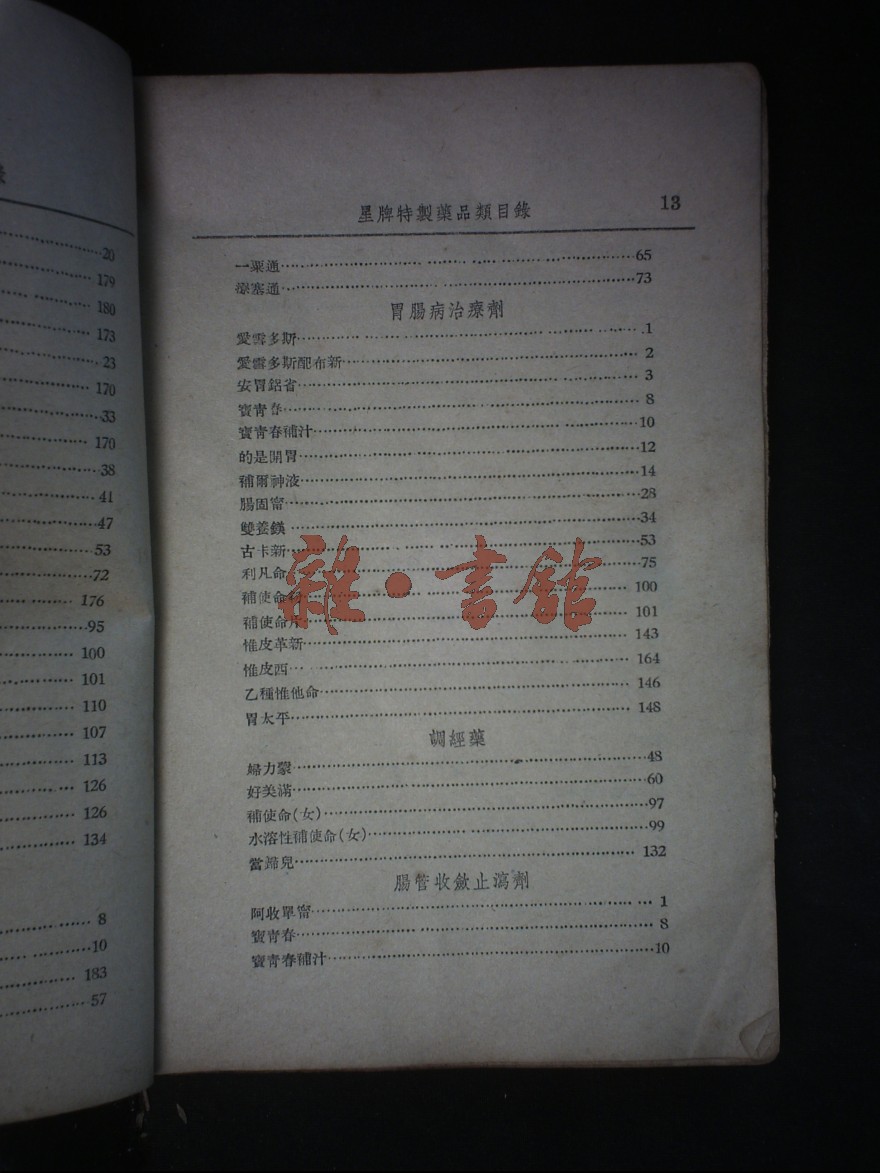 20
179
180
173
23
170
33
170
38
41
47
53
72
176
95
100
101
110
107
113
126
126
134
8
10
183
57
星牌特製藥品類目錄 13
一粟通 65
療塞通 73
胃腸病治療劑
愛雪多斯 1
愛雪多斯配布新 2
安胃鋁省 3
寶青春 8
寶青春補汁 10
的是開胃 12
補爾神液 14
腸固甯 28
雙養鎂 34
古卡新 53
利凡命 75
補使命 100
補使命片 101
惟皮革新 143
惟皮西 164
乙種惟他命 146
胃太平 148
調經藥
婦力蒙 48
好美滿 60
補使命(女) 97
水溶性補使命(女) 99
當歸兒 132
腸管收斂止瀉劑
阿收單甯 1
寶青春 8
寶青春補汁 10
雜·書館